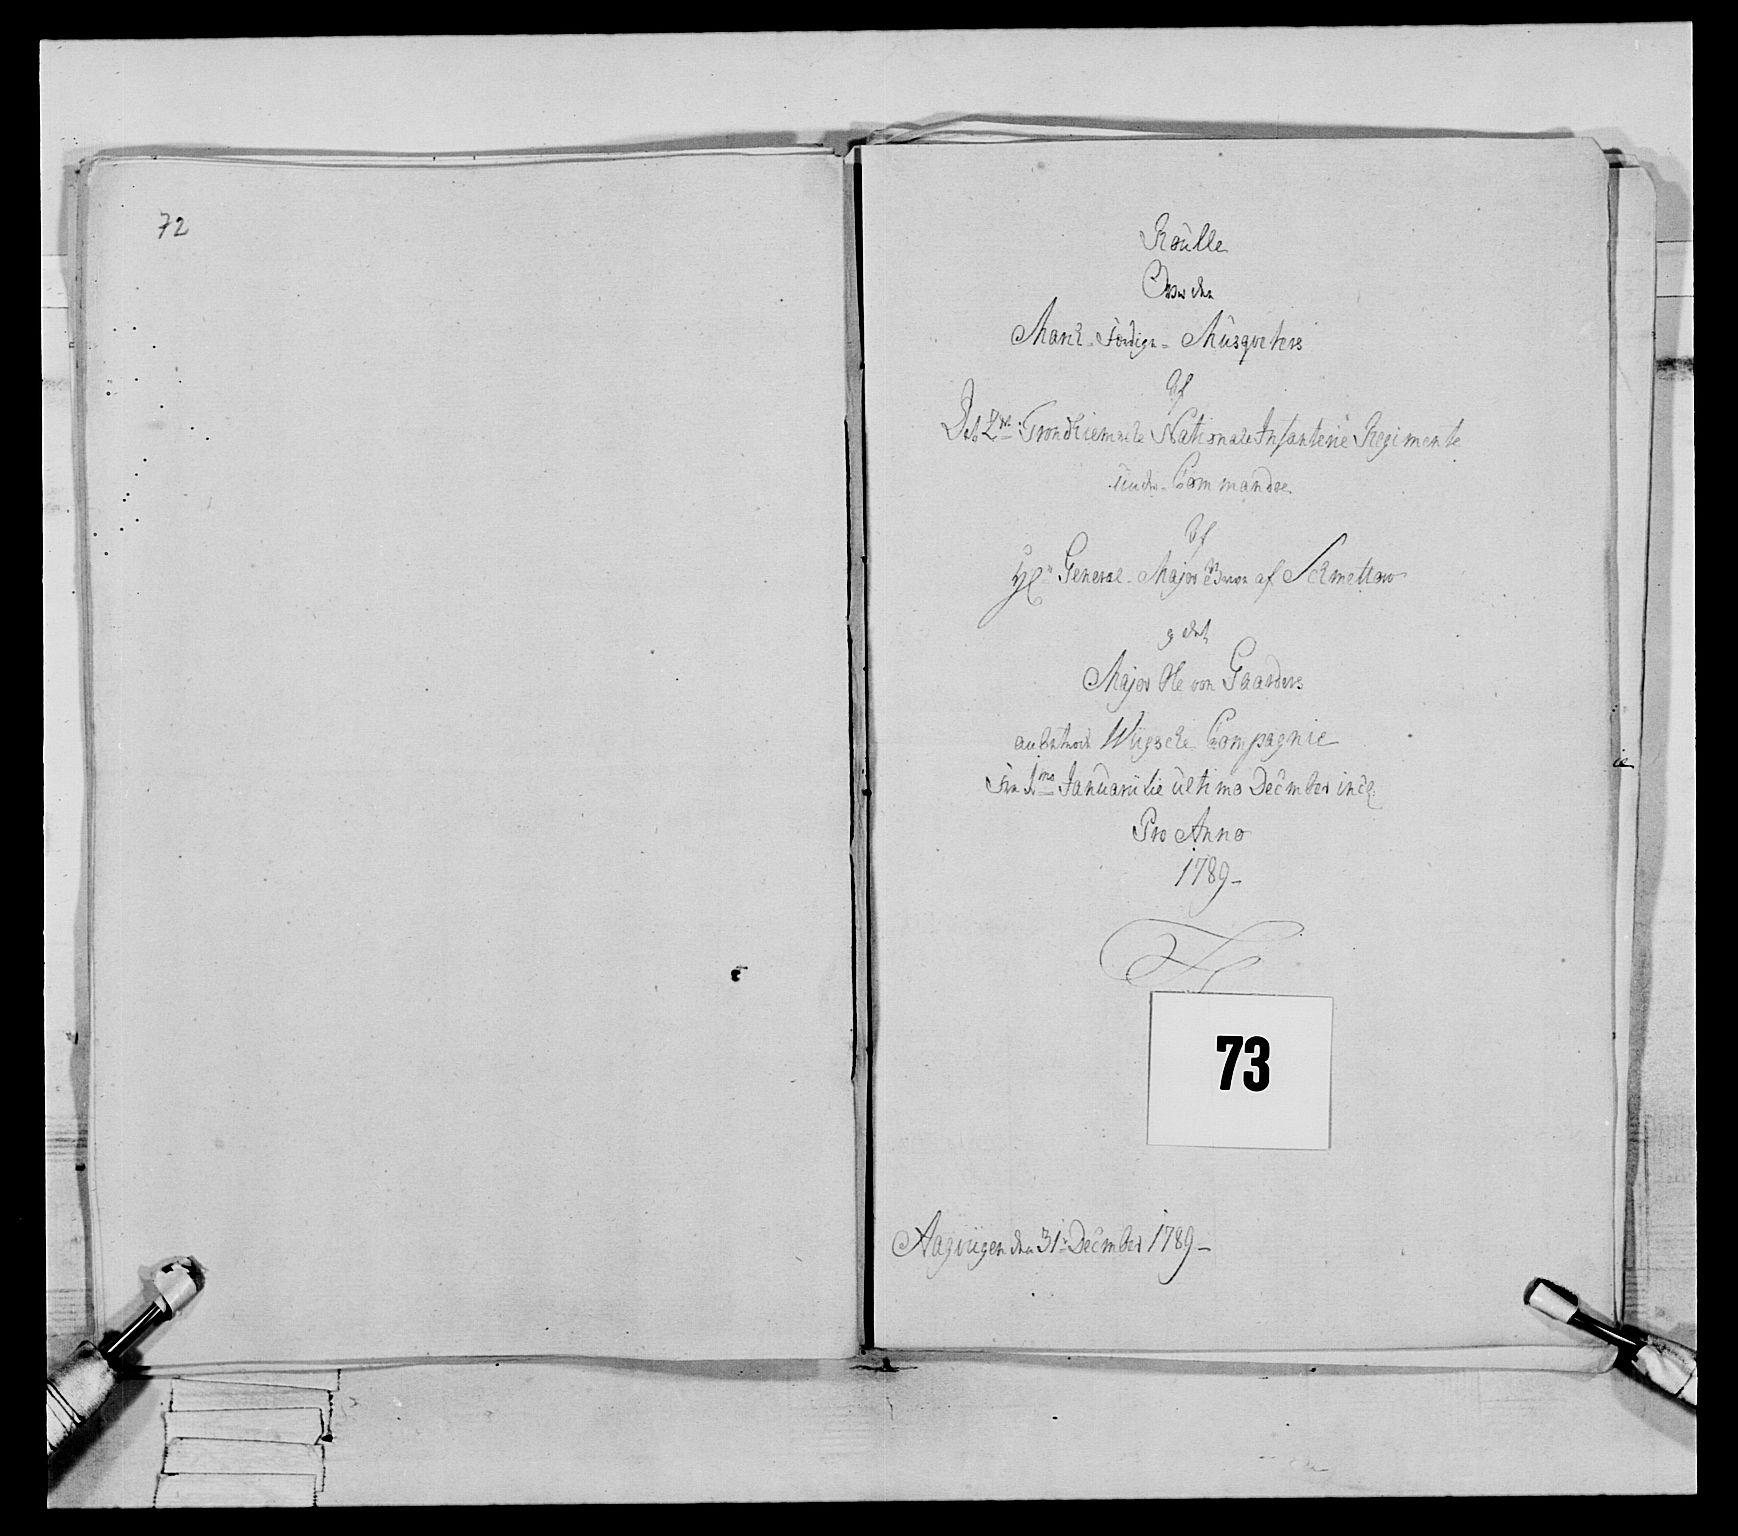 72
Roulle
Over den
Mand-Færdige-Musqveters
Af
Det 2det Trondhiemske Nationale Infanterie Regimente
under Commandoe
Af
Hr General-Major Baron af Schmettow
og det
Major Ole von Gaarders
anbetroede Wiigske Compagnie
Fra 1mo Januarii til ultimo December incl.
Pro Anno
1789
73
den 31 December 1789